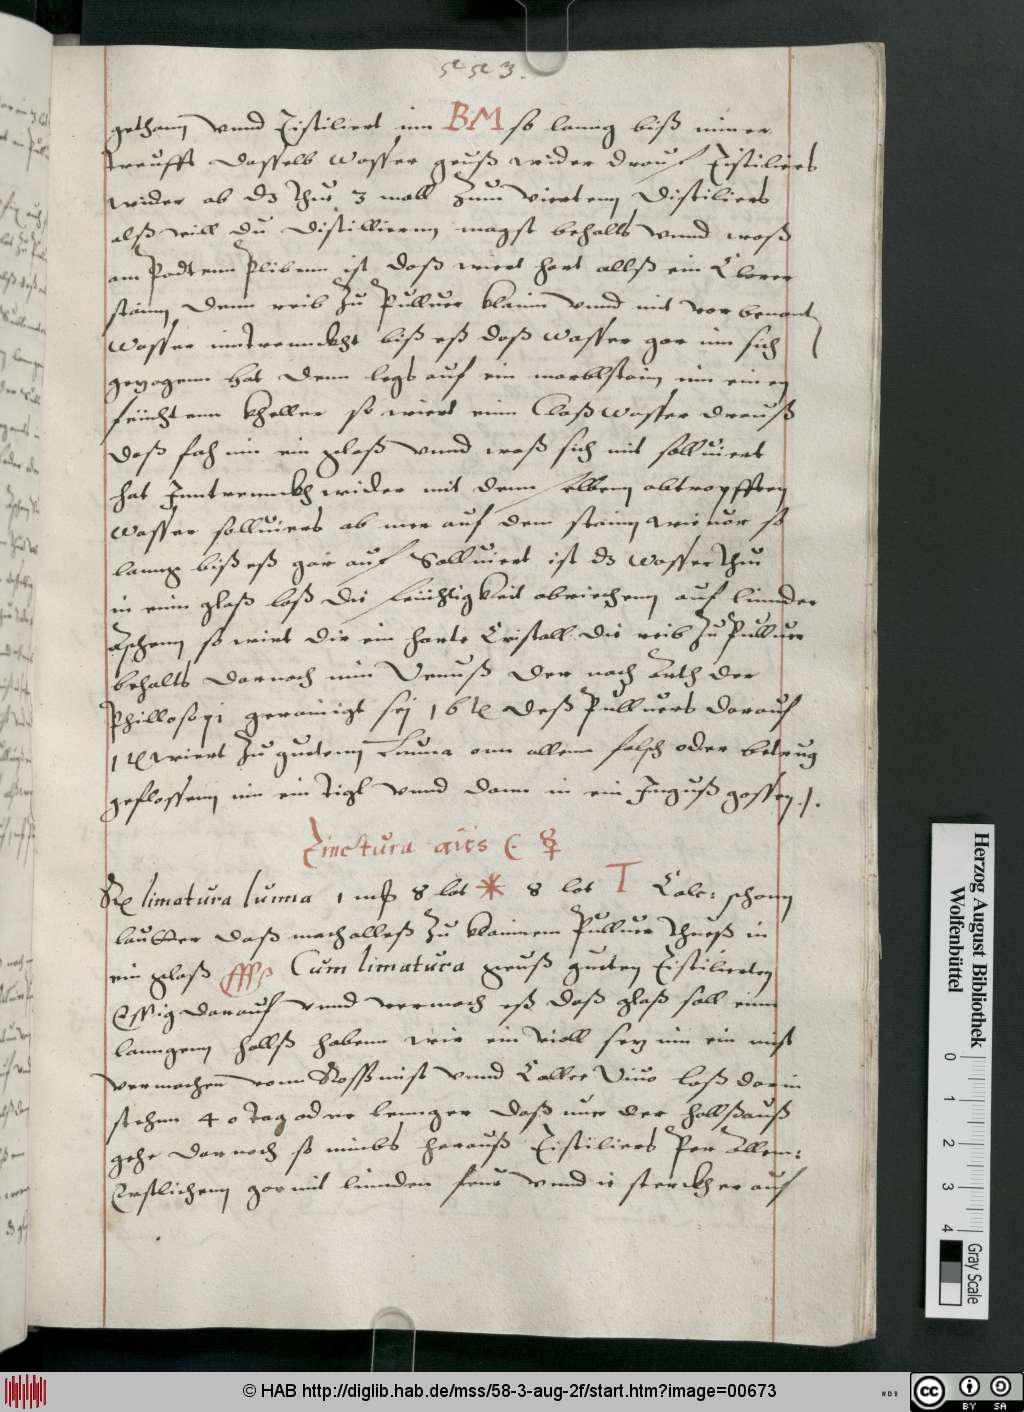 553.
gethann vnnd Distiliert inn BM so lanng biß nimer
treufft dasselb Wasser geuß wider drauf Distiliers
wider ab dz thue 3 mall Zum viertenn Distiliers
alß vill du distillieren magst behalts vnnd waß
am Podtenn Plibenn ist daß wiert hart allß ein
stainn denn reib Zu Pulluer klainn vnnd mit vor benant
Wasser inntrennckht biß eß daß Wasser gar inn sich
gezogenn hat denn legs auf ein marblstain inn einen
feüchtenn kheller so wiert einn Wasser drauß
daß fah inn ein glaß vnnd waß sich nit solluiert
hat Inntrennckh wider mit dem selbenn abtropfften
Wasser solluiers ab mer auf dem stainn wie vor so
lanng biß eß gar auf Solluiert ist dz Wasser Thue
in einn glaß laß die feüchtigkeit abriechenn auf linnder
Aschenn so wirt dir ein harte Cristall die reib Zu Pulluer
behalts darnach nim Venuß der nach Arth der
Phillosopi gerainigt sej 16 deß Pulluers darauf
1 wiert Zu guetenn Lunna ann allenn falsch oder betrug
geflossenn inn ein Tigl vnnd dann in ein Inguß gossen ./.
Tinctura auß ☾ ☿
Rx limatura lunna 1 8 lot * 8 lot T Calc: schonn
lautter daß mach alleß Zu klainem Pulluer Thueß in
ein glaß Cum limatura geuß gueten Distilierten
Essig darauf vnnd vermach eß daß glaß soll einn
lanngenn hallß habenn wie ein Viall sez inn ein mist
vermachen vonn Roßmist vnnd Callce Viuo laß darin
stehnn 40 Tag oder lennger daß nur der hallß auß
gehe darnach so nimbs herauß Distiliers Per Allem:
Erstlichenn gar mit linnden feur vnnd ie sterckher auf
Herzog August Bibliothek
Wolfenbüttel
0 1 2 3 4
Gray Scale
© HAB http://diglib.hab.de/mss/58-3-aug-2f/start.htm?image=00673
cc BY SA